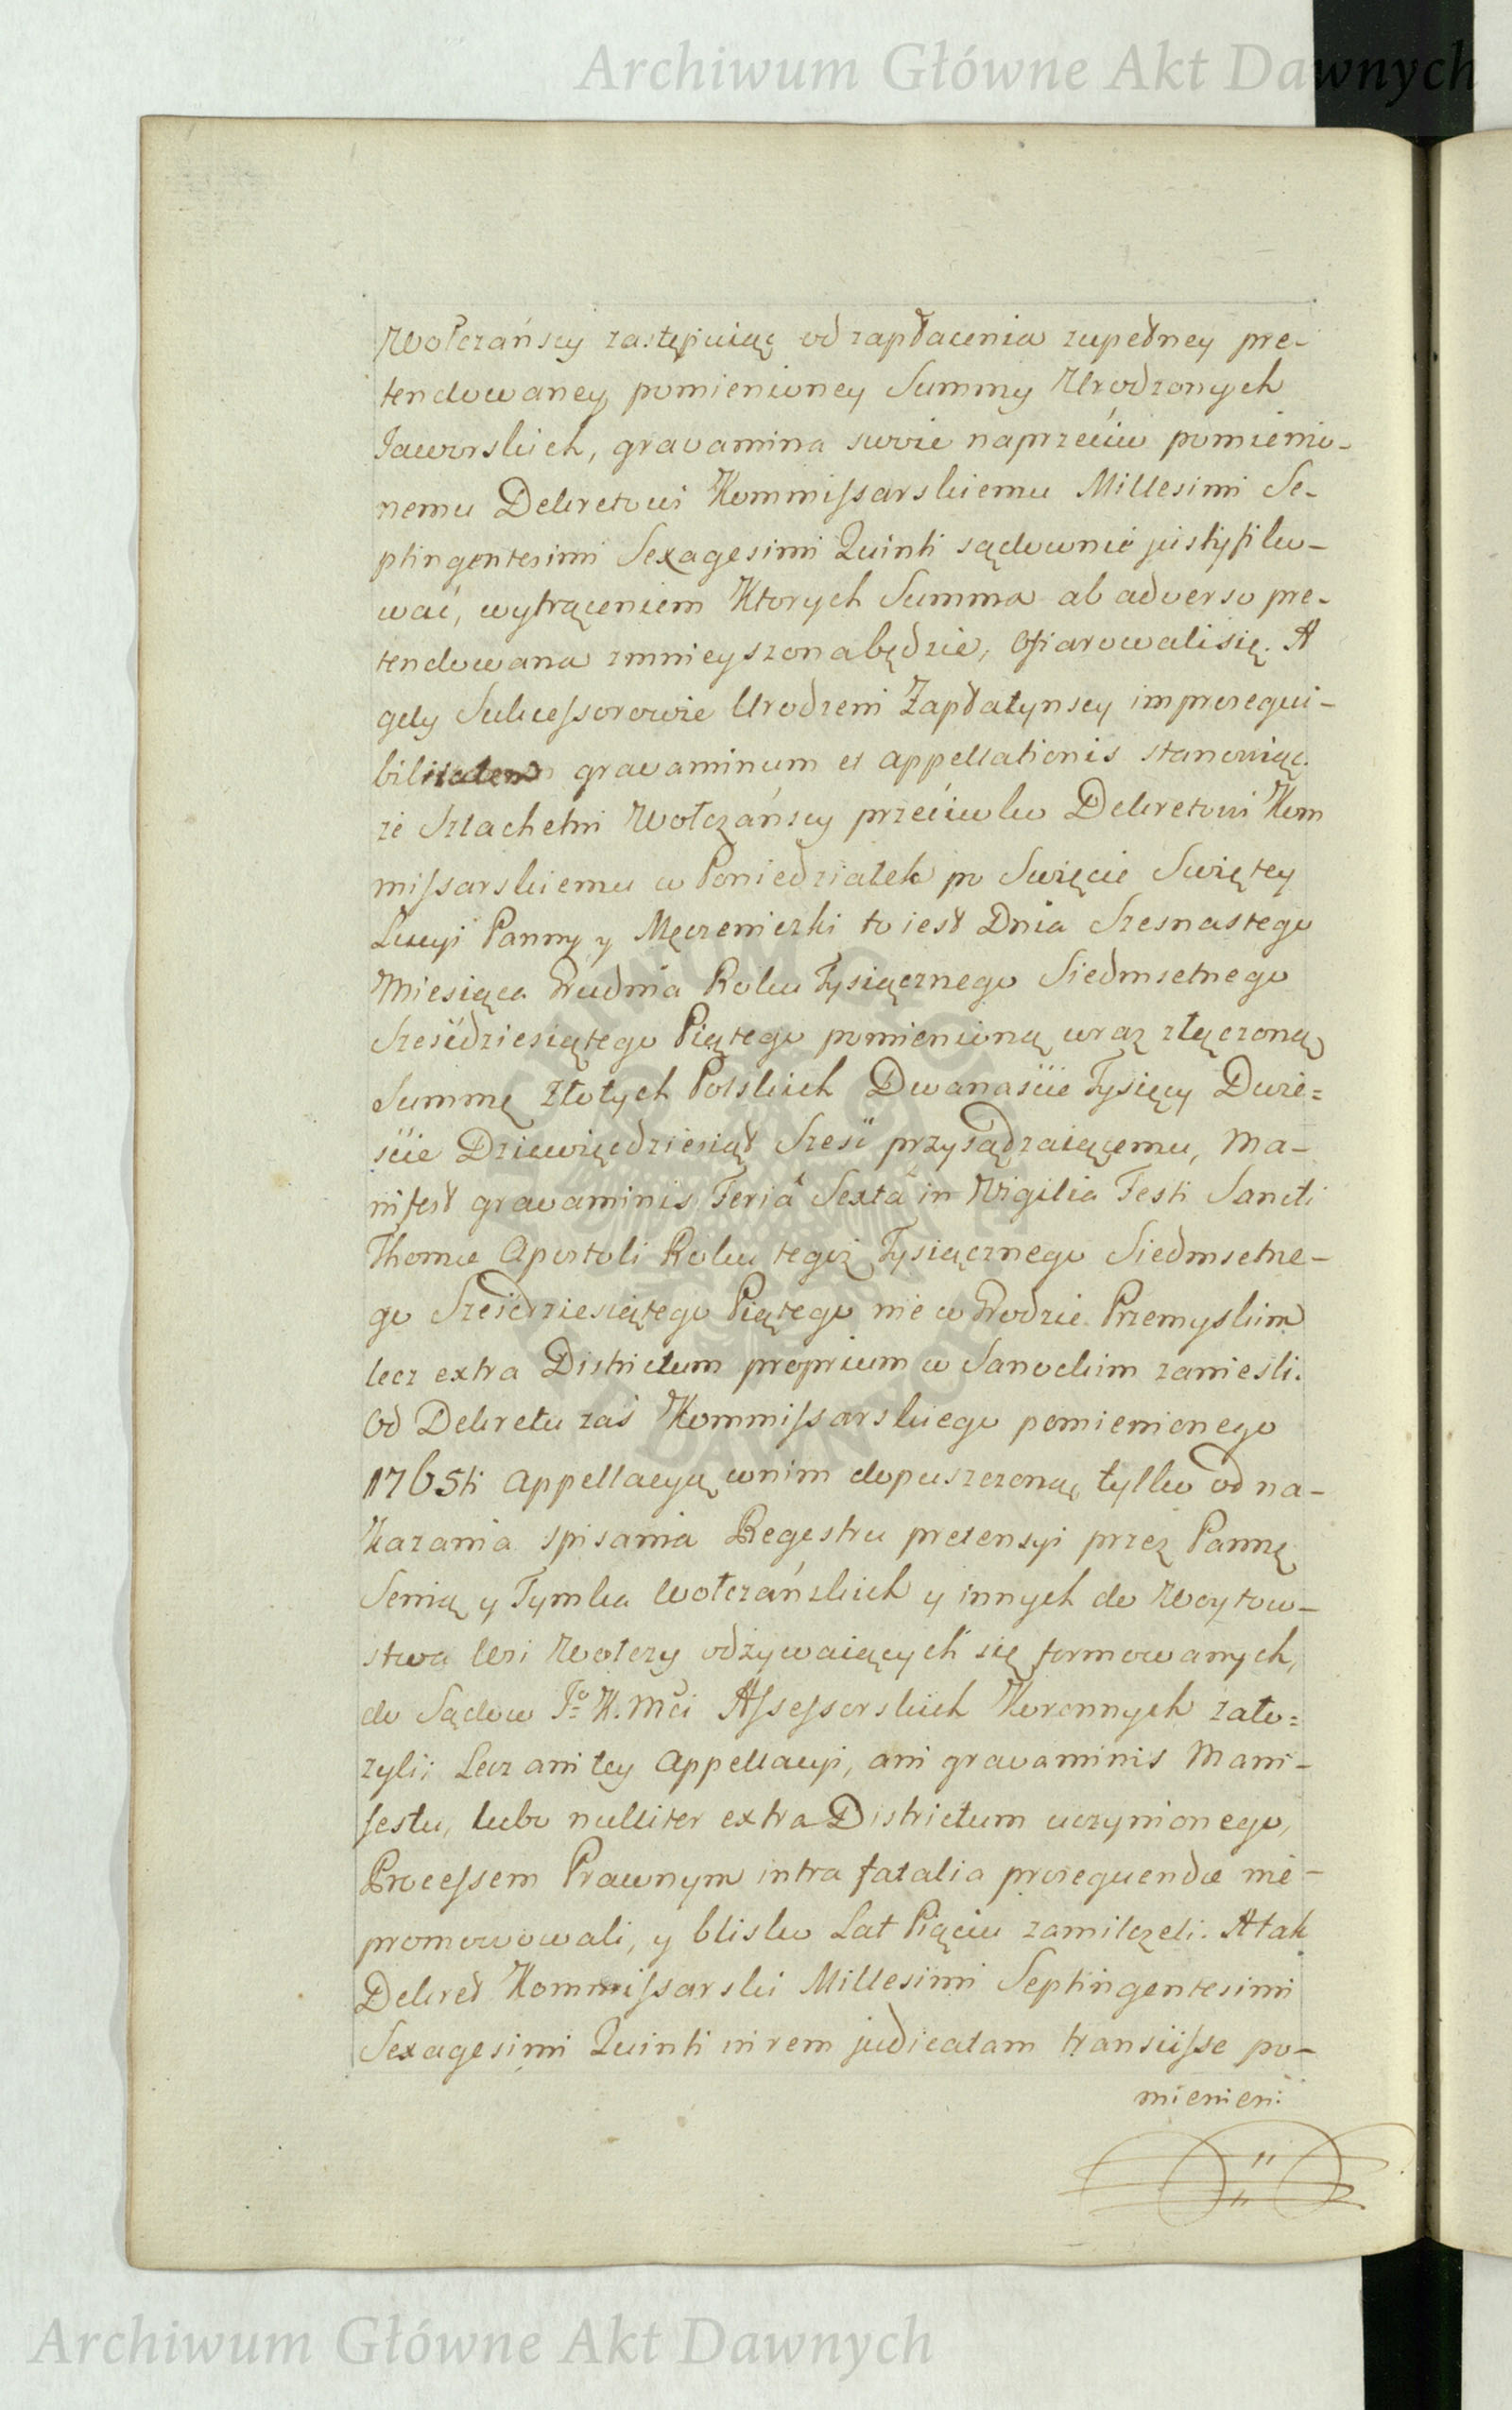 Archiwum Główne Akt Dawnych
Wołczańscy zastępuiąc od zapłacenia zupełney pre-
tendowaney pomienioney Summy Urodzonych
Jaworskich, gravamina swoie naprzeciw pomienio-
nemu Dekretowi Kommissarskiemu Millesimi Se-
ptingentesimi Sexagesimi Quinti sądownie justyfiko-
wać, wytrąceniem Ktorych Summa ab adverso pre-
tendowana zmnieyszona będzie, ofiarowali się. A
gdy Sukcessorowie Urodzeni Zapłatynscy improsequi-
bilitatem gravaminum et appellationis stanowiąc
że Szlachetni Wołczańscy przeciwko Dekretowi Kom
missarskiemu w Poniedziałek po Swięcie Swiętey
Lucyi Panny y Męczenniczki to iest Dnia Szesnastego
Miesiąca Grudnia Roku Tysiącznego Siedmsetnego
Sześćdziesiątego Piątego pomienioną wraz złączoną
Summę Złotych Polskich Dwanaście Tysięcy Dwie=
ście Dziewięćdziesiąt Sześć przysądzaiącemu, Ma-
nifest gravaminis Feriâ Sextâ in Vigilia Festi Sancti
Thomæ Apostoli Roku tegoż Tysiącznego Siedmsetne-
go Sześćdziesiątego Piątego nie w Grodzie Przemyslkim
lecz extra Districtum proprium w Sanockim zaniesli.
Od Dekretu zaś Kommissarskiego pomienionego
1765ti Appellacyą w nim dopuszczoną, tylko od na-
kazania spisania Regestru pretensyi przez Pannę
Senią y Tymka Wołczańskich y innych do Woytow-
stwa Wsi Wołczy odzywaiących się formowanych,
do Sądow Jo K. Mci Assessorskich Koronnych zało=
żyli; Lecz ani tey Appellacyi, ani gravaminis Mani-
festu, lubo nulliter extra Districtum uczynionego,
Processem Prawnym intra fatalia prosequendæ nie-
promowowali, y blisko Lat Pięciu zamilczeli. A tak
Dekret Kommissarski Millesimi Septingentesimi
Sexagesimi Quinti in rem judicatam transiisse po-
mienien:
Archiwum Główne Akt Dawnych